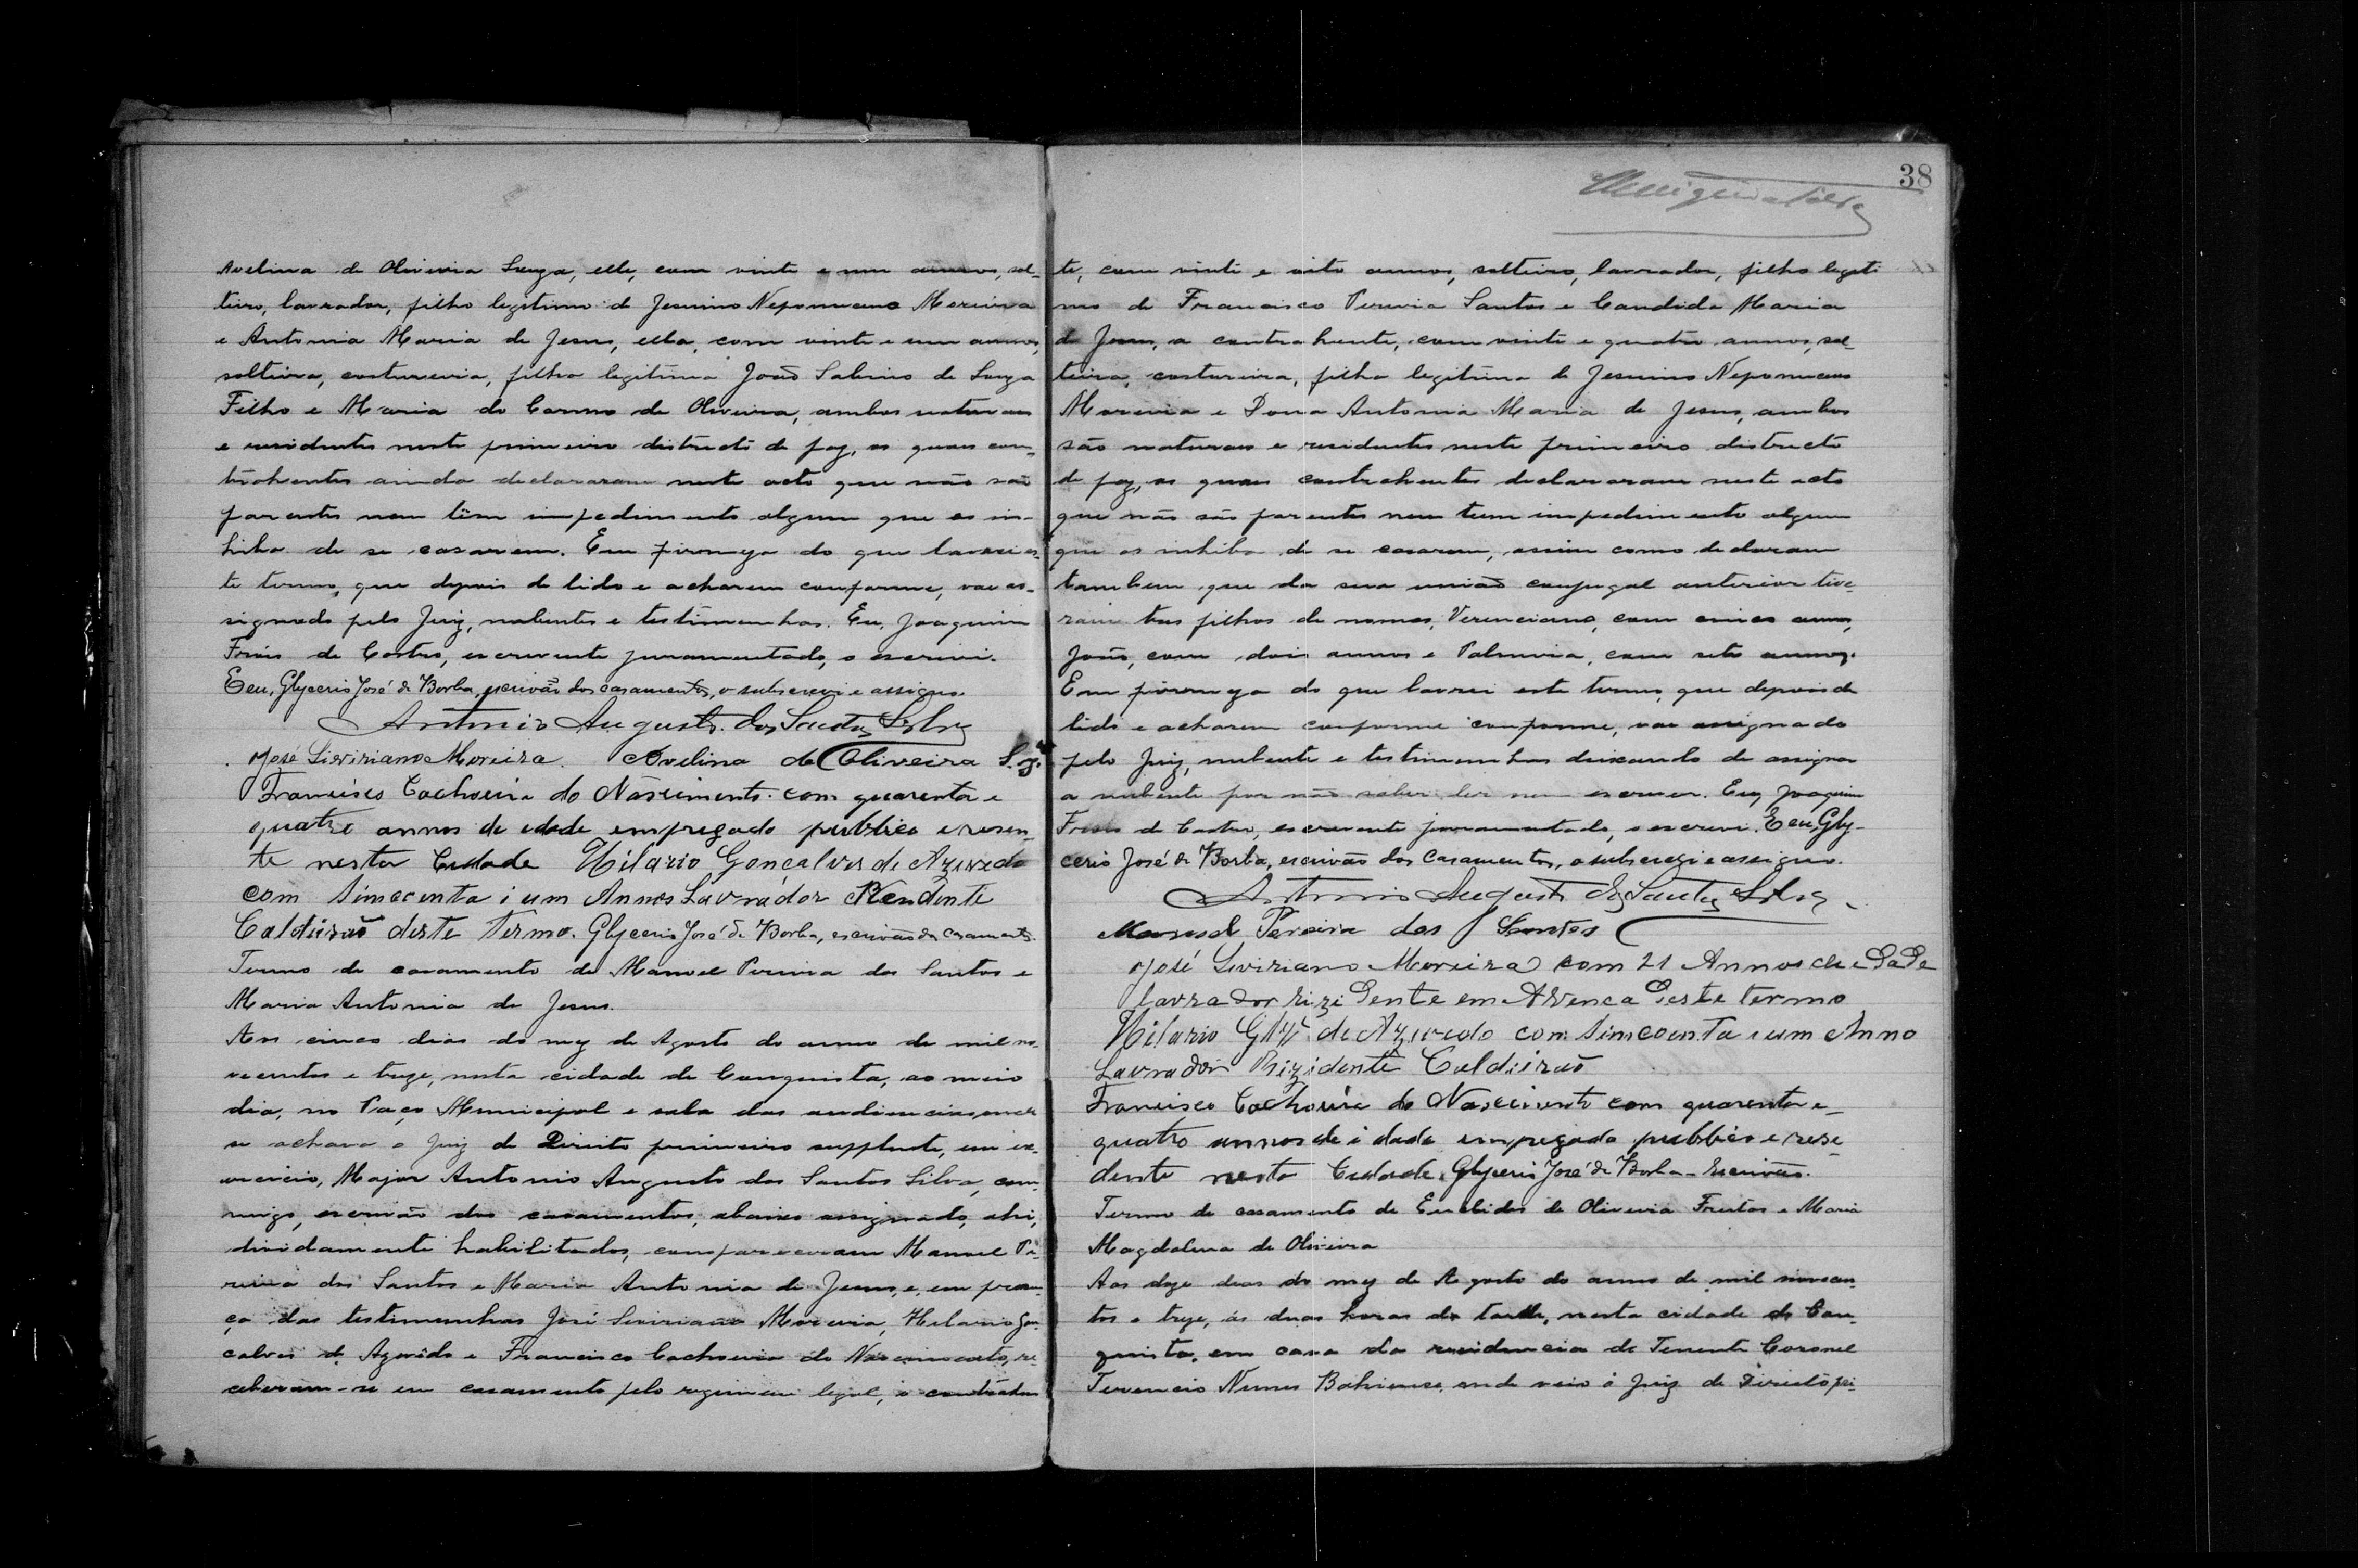 Avelina de Oliveira Souza, elle, com vinte e um annos, sol-
teiro, lavrador, filho legitimo de Jesuino Nepomuceno Moreira
e Antonia Maria de Jesus, ella, com vinte e um annos,
solteira, costureira, filha legitima João Sabino de Souza
Filho e Maria do Carmo de Oliveira, ambos naturaes
e residentes neste primeiro districto de paz, os quaes con-
trahentes ainda declararam neste acto que não são
parentes nem têm impedimento algum que os in-
hiba de se casarem. Em firmeza do que lavrei es-
te termo, que depois de lido e acharem conforme, vae as-
signado pelo Juiz, nubentes e testimunhas. Eu, Joaquim
de Castro, escrevente juramentado, o escrevi.
E eu, Glycerio José de Borba, escrivão dos casamentos, o subscrevi e assigno.
Antonio Augusto dos Santos Silva
José Siviriano Moreira. Avelina de Oliveira S.za
Francisco Cachoeira do Nascimento com quarenta e
quatro annos de edade empregado publico e resen-
te nesta Cidade Hilario Gonçalves de Azevedo
com Simcoenta i um Annos Lavrador Rendente
Caldeirão deste Termo. Glycerio José de Borba, escrivão dos casamentos.
Termo de casamento de Manoel Pereira dos Santos e
Maria Antonia de Jesus.
Aos cinco dias do mez de Agosto do anno de mil no-
vecentos e treze, nesta cidade de Conquista, ao meio
dia, no Paço Municipal e sala das audiencias, onde
se achava o Juiz de Direito primeiro supplente, em ex-
ercicio, Major Antonio Augusto dos Santos Silva, com-
migo, escrivão dos casamentos, abaixo assignado, ahi,
dividamente habilitados, compareceram Manoel Pe-
reira dos Santos e Maria Antonia de Jesus, e, em presen-
ça das testimunhas José Siviriano Moreira, Hilario Gon-
çalves de Azevêdo e Francisco Cachoeira do Nascimento, re-
ceberam-se em casamento pelo regimen legal, o contrahen-
38
te, com vinte e oito annos, solteiro, lavrador, filho legiti
mo de Francisco Pereira Santos e Candida Maria
de Jesus, a contrahente, com vinte e quatro annos, sol-
teira, costureira, filha legitima de Jesuino Nepomuceno
Moreira e Dona Antonia Maria de Jesus, ambos
são naturaes e residentes neste primeiro districto
de paz, os quaes contrahentes declararam neste acto
que não são parentes nem tem impedimento algum
que os inhiba de se casarem, assim como declaram
tambem que da sua união conjugal anterior tive-
ram tres filhos de nomes, Verenciano, com cinco annos,
João, com dois annos e Palmira, com sete annos.
Em firmeza do que lavrei este termo, que depois de
lido e acharem conforme conforme, vae assignado
pelo Juiz, nubente e testimunhas deixando de assignar
a nubente por não saber ler nem escrever. Eu, Joaquim
de Castro, escrevente juramentado, o escrevi. E eu, Gly-
cerio José de Borba, escrivão dos casamentos, o subscrevi e assigno.
Antonio Augusto dos Santos Silva
Manoel Pereira dos Santos
José Siviriano Moreira com 21 Annos de edade
lavrador rizidente em deste termo
Hilario Glz de Azevedo com Simcoenta i um Anno
Lavrador Rizidente Caldeirão
Francisco Cachoeira do Nascimento com quarenta e
quatro annos de idade empregado publico e rese-
dente nesta Cidade. Glycerio José de Borba - Escrivão.
Termo de casamento de Euclides de Oliveira Freitas e Maria
Magdalena de Oliveira
Aos doze dias do mez de Agosto do anno de mil novecen-
tos e treze, ás duas horas da tarde, nesta cidade de Con-
quista, em casa da residencia de Tenente Coronel
Terencio Nunes Bahiense, onde veio o Juiz de Direito pri-